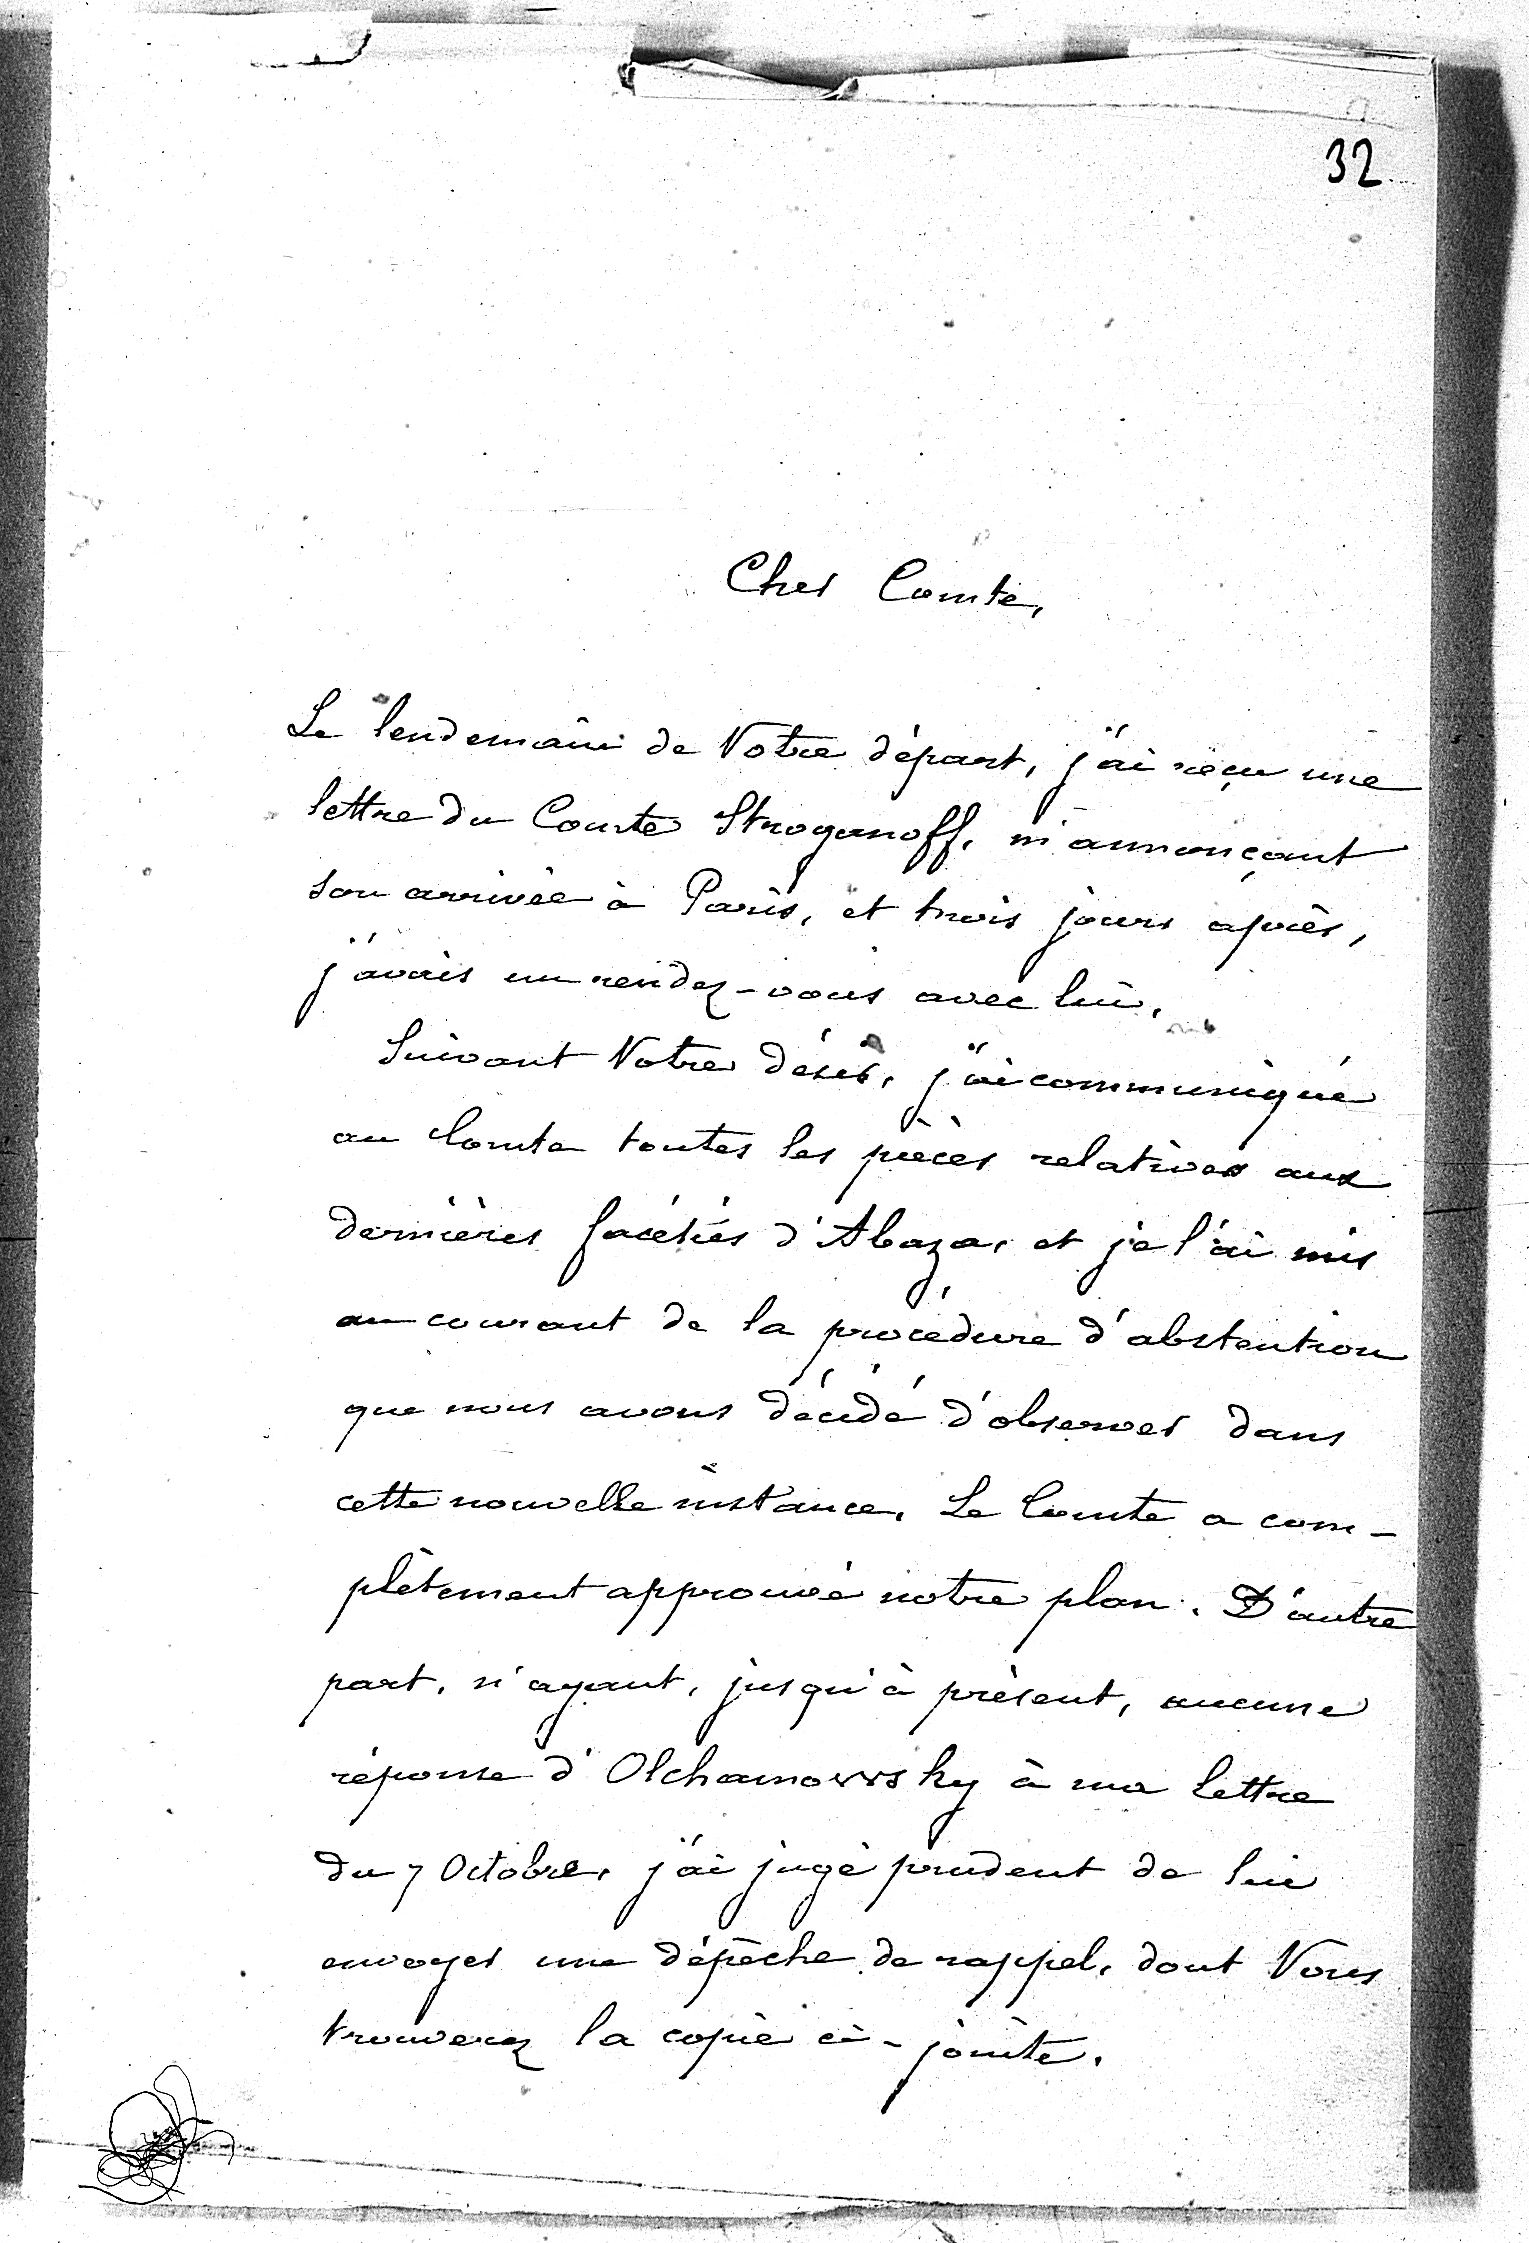 32
Cher Comte,
Le lendemain de Votre départ, j'ai reçu une
lettre du Comte Stroganoff, m'annonçant
son arrivée à Paris, et trois jours après,
j'avais un rendez-vous avec lui.
Suivant Votre désir, j'ai communiqué
au Comte toutes les pièces relatives aux
dernières facéties d'Abaza, et je l'ai mis
au courant de la procédure d'abstention
que nous avons décidé d'observer dans
cette nouvelle instance. Le Comte a com-
plètement approuvé notre plan. D'autre
part, n'ayant, jusqu'à présent, aucune
réponse d'Olchamowsky à ma lettre
du 7 Octobre, j'ai jugé prudent de lui
envoyer une dépêche de rappel, dont Vous
trouverez la copie ci-jointe.